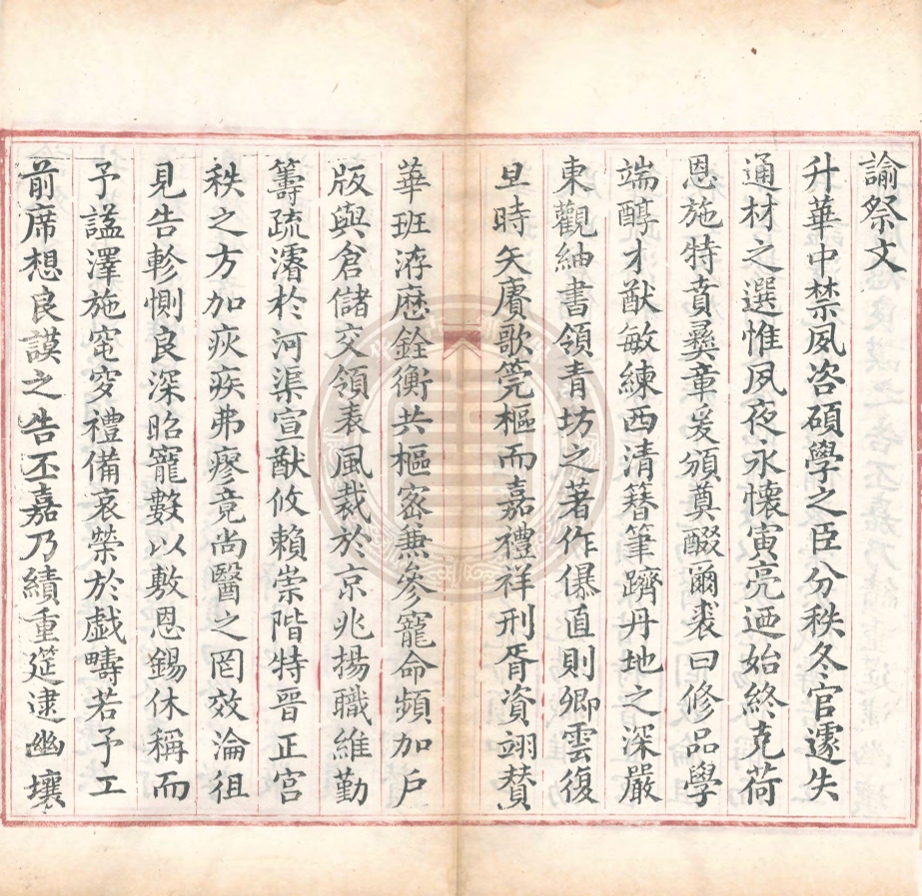 諭祭文
升華中禁夙咨碩學之臣分秩冬官遽失
通材之選惟夙夜永懷寅亮迺始終克荷
恩施特賁彝章爰頒奠醊爾裘曰修品學
端醇才猷敏練西清簪筆躋丹地之深嚴
東觀紬書領青坊之著作儤直則卿雲復
旦時矢賡歌筦樞而嘉禮祥刑胥資翊贊
華班洊歷銓衡共樞密兼參寵命頻加戶
版與倉儲交領表風裁於京兆揚職維勤
籌疏濬於河渠宣猷攸賴崇階特晉正宮
秩之方加疢疾弗瘳竟尚醫之罔效淪徂
見告軫惻良深昭寵數以敷恩錫休稱而
予諡澤施窀穸禮備哀榮於戲疇若予工
前席想良謨之告丕嘉乃績重筵逮幽壤